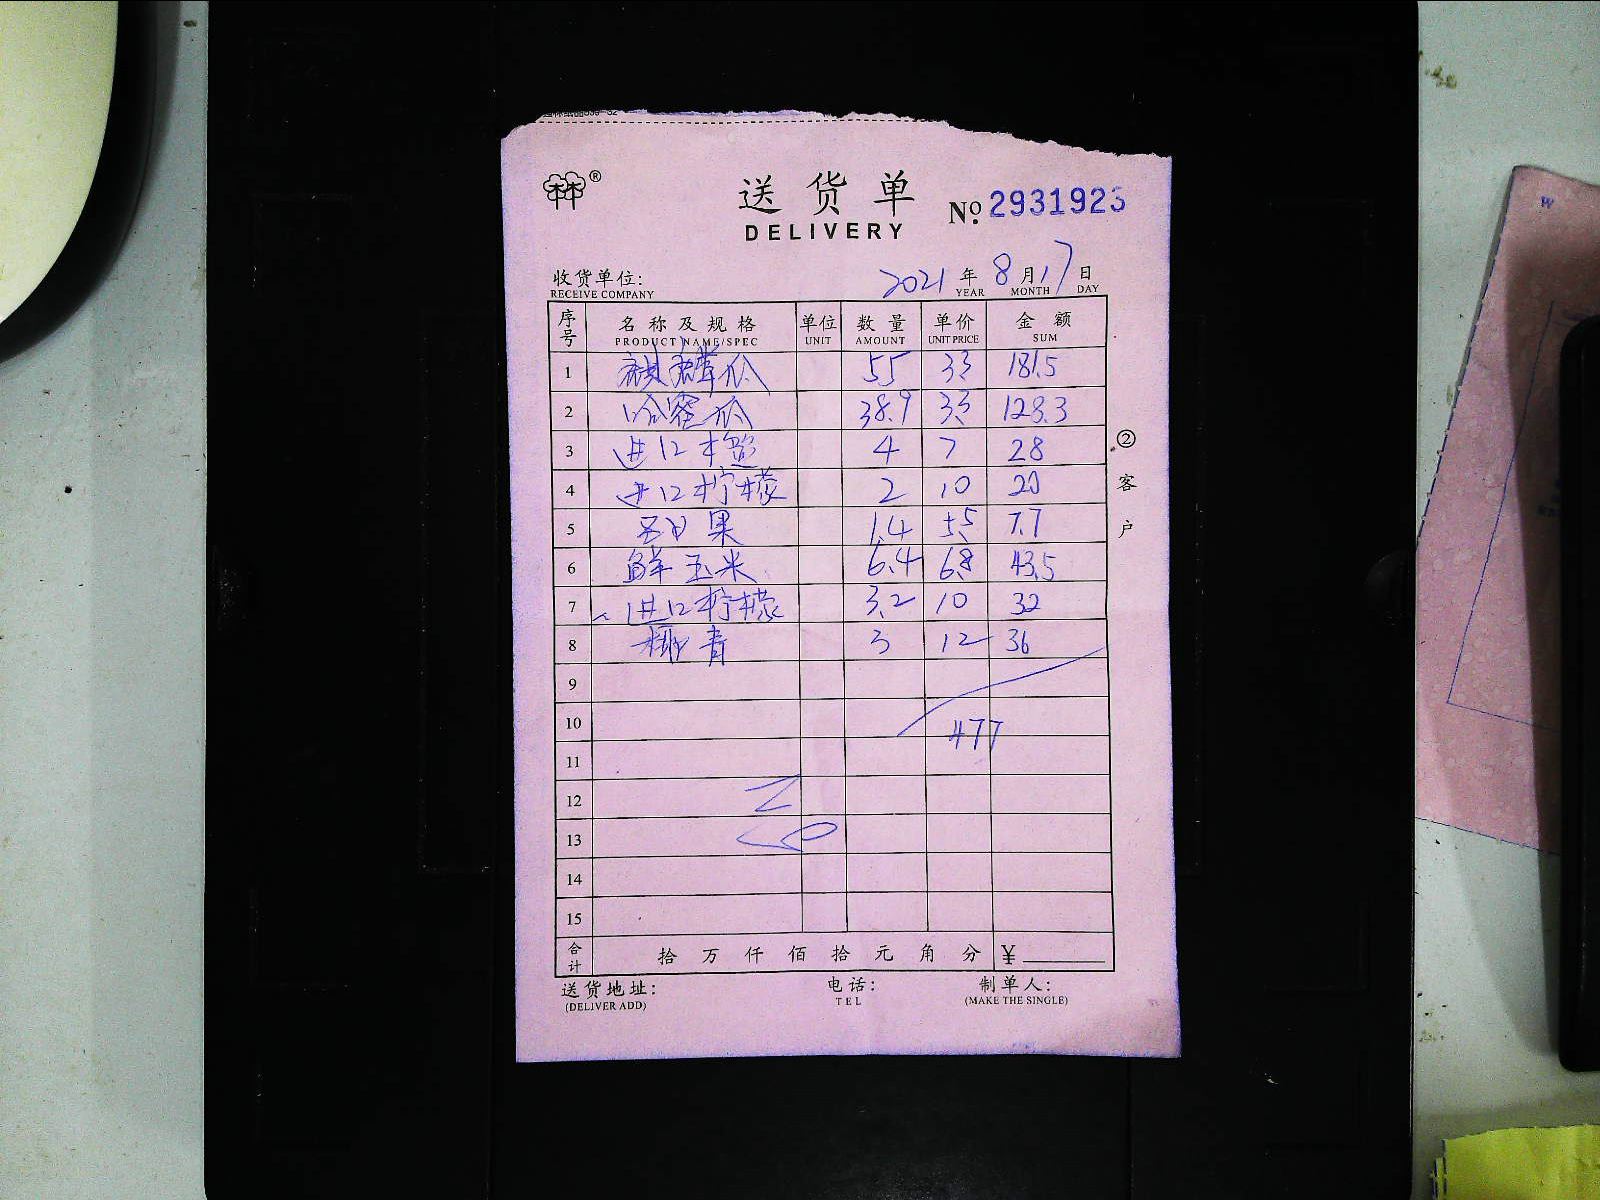 送货单
DELIVERY
No. 2931923
收货单位:
RECEIVE COMPANY
2021年8月17日
YEAR MONTH DAY
序号 名称及规格 单位 数量 单价 金额
PRODUCT NAME/SPEC UNIT AMOUNT UNIT PRICE SUM
1 麒麟瓜 55 3.3 181.5
2 哈密瓜 38.9 3.3 128.3
3 进口橙 4 7 28
4 进口柠檬 2 10 20
5 百香果 1.4 5.5 7.7
6 鲜玉米 6.4 6.8 43.5
7 进口柠檬 3.2 10 32
8 椰青 3 12 36
9
10 477
11
12
13
14
15
合计 拾万仟佰拾元角分 ¥
送货地址: 电话: 制单人:
(DELIVER ADD) TEL (MAKE THE SINGLE)
②客户